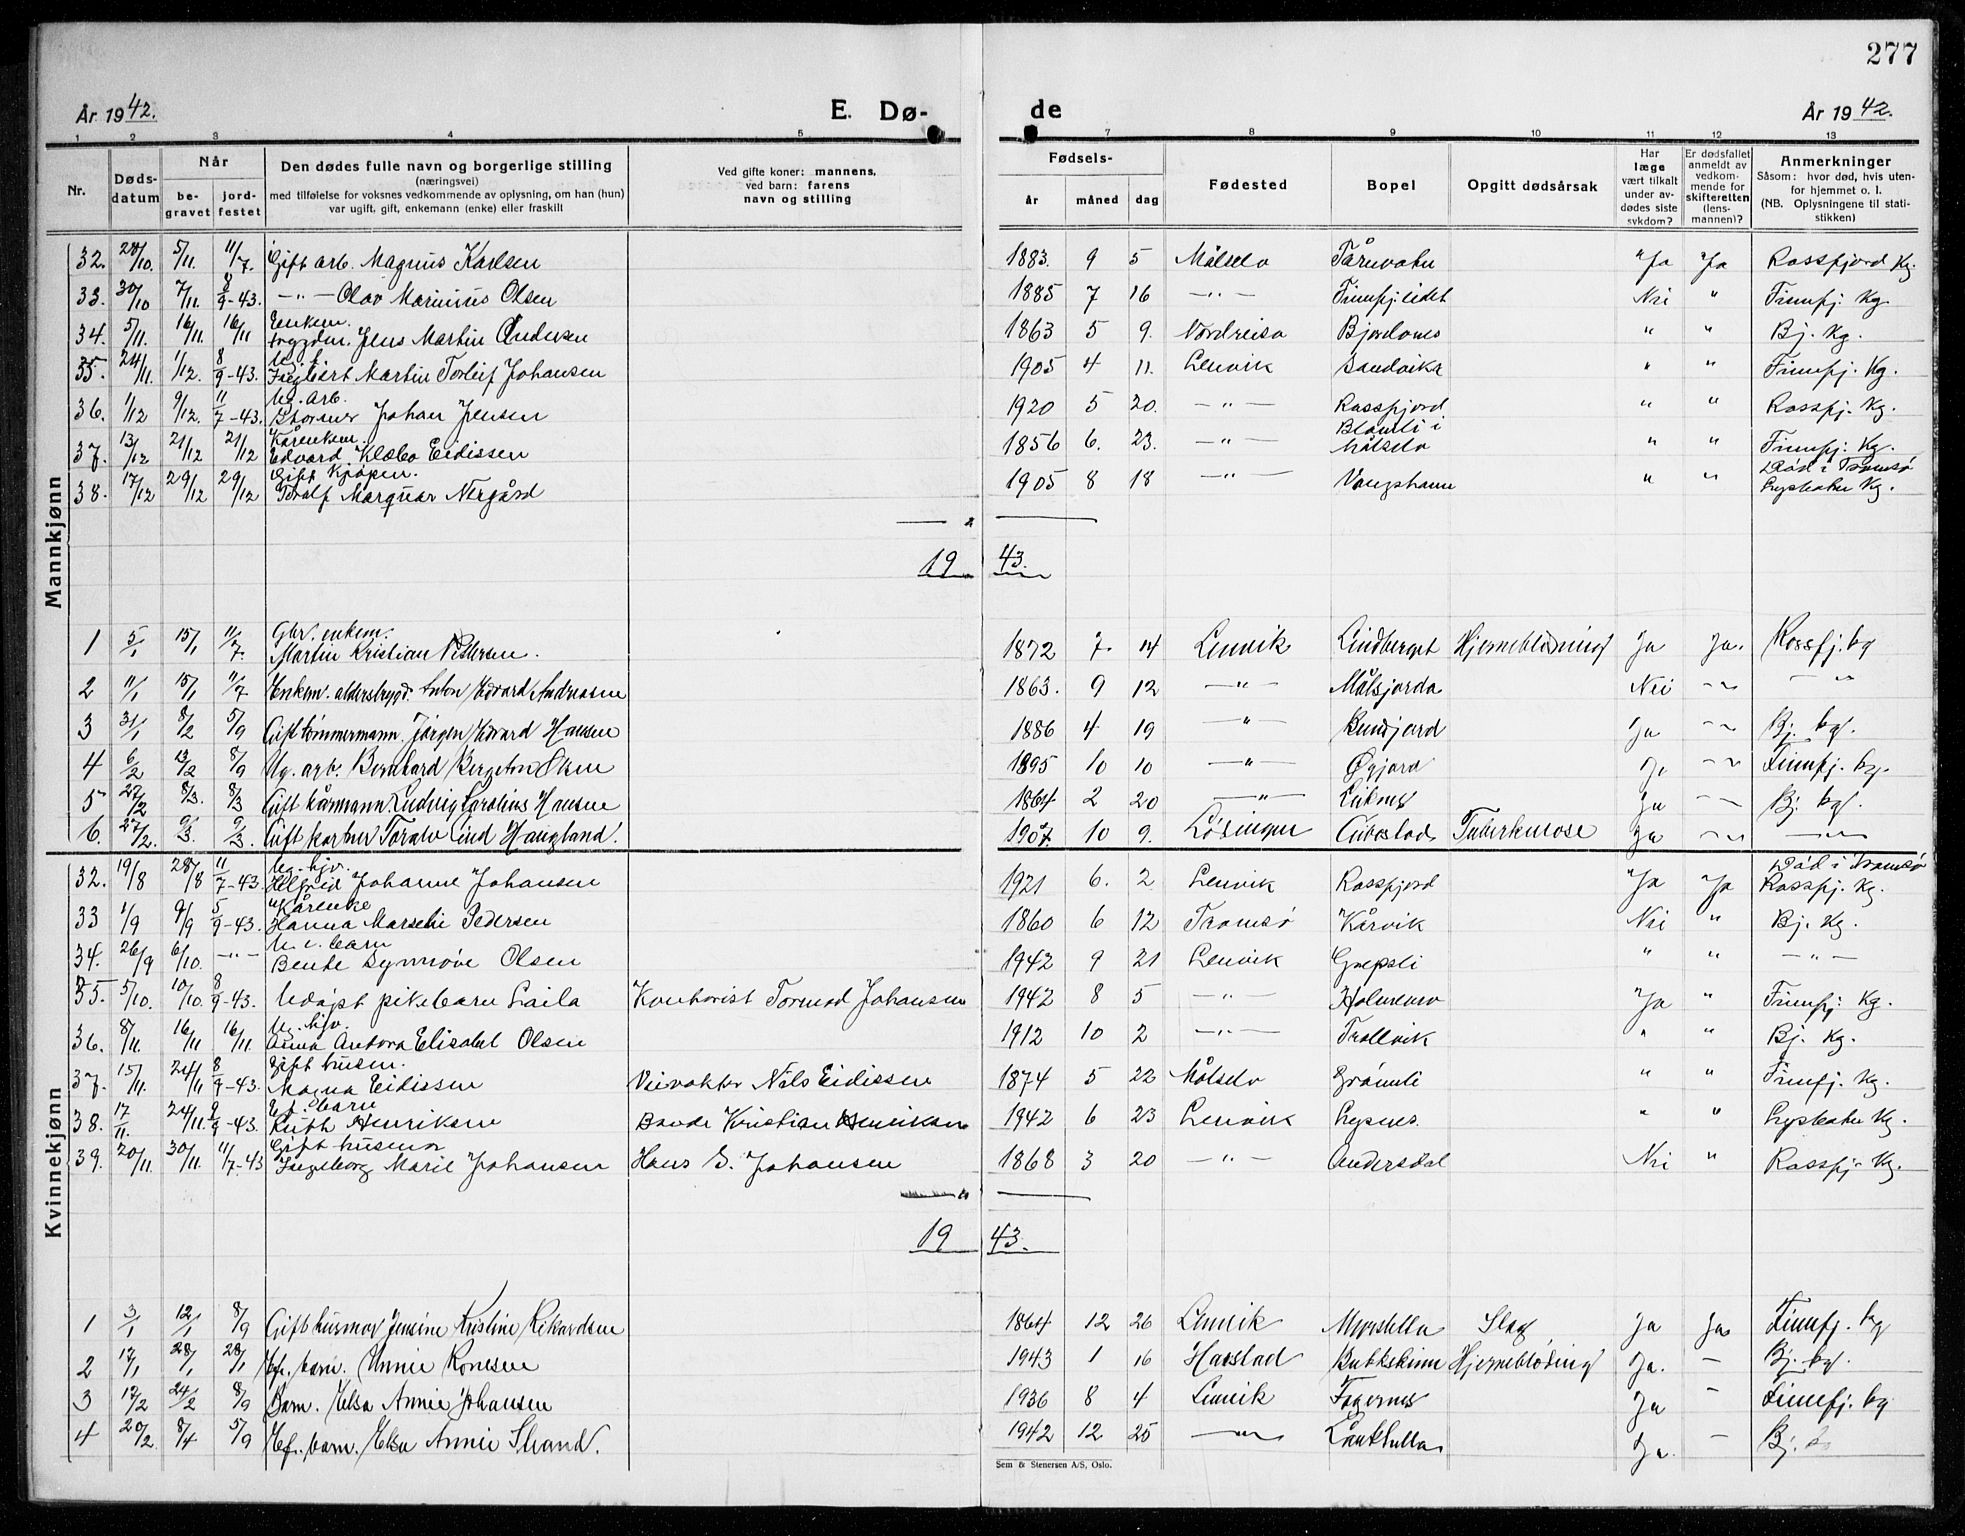 277
År 1942.
E. Dø-
de
År 1942.
1 2 3 4 5 7 8 9 10 11 12 13
Nr.
Døds-
datum
Når
be-
gravet
jord-
festet
Den dødes fulle navn og borgerlige stilling
(næringsvei)
med tilføielse for voksnes vedkommende av oplysning, om han (hun)
var ugift, gift, enkemann (enke) eller fraskilt
Ved gifte koner: mannens,
ved barn: farens
navn og stilling
Fødsels-
år måned dag
Fødested
Bopel
Opgitt dødsårsak
Har
læge
vært tilkalt
under av-
dødes siste
sykdom?
Er dødsfallet
anmeldt av
vedkom-
mende for
skifteretten
(lens-
mannen)?
Anmerkninger
Såsom: hvor død, hvis uten-
for hjemmet o. l.
(NB. Oplysningene til stati-
stikken)
Mannkjønn
32. 28/10. 5/11. 11/7. Gift arb. Magnus Karlsen 1883. 9 5 Målselv Tårnvatn Ja Ja Rossfjord Kg.
33. 30/10 7/11. 8/9-43. —"— Olav Marinius Olsen 1885 7 16 —"— Finnfj.eidet Nei " Finnfj. Kg.
34. 5/11. 16/11. 16/11 Enkem.
Jens Martin Andersen 1863 5 9. Nordreisa Bjorelvnes " " Bj. Kg.
35. 24/11. 1/12. 8/9-43. Ug. f.
Ingbert Martin Torleif Johansen 1905 4 11. Lenvik Sandvika " " Finnfj. Kg.
36. 1/12 9/12. 11/7-43. Ug. arb.
Johan Jensen 1920 5 20. —"— Rossfjord " " Rossfj. Kg.
37. 13/12 21/12 21/12 Kårenkem.
Edvard Klæbo Eidissen 1856 6. 23. —"— i
Målselv " " Finnfj. Kg.
38. 17/12 29/12 29/12 Gift kjøpm.
Toralf Marquar Nergård 1905 8 18 —"— Vangshamn " " Død i Tromsø
Lysbotn Kg.
19 43.
1 5/1 15/1 11/7. Gbr. enkem.
Martin Kristian Pettersen. 1872 7. 14 Lenvik Lindberget Hjerneblødning Ja Ja. Rossfj. kg
2 11/1 15/1 11/7 Enkem. alderstrygd. Anton Edvard Andreassen 1863. 9 12 —"— Målsjorda Nei —"— —"—
3 31/1 8/2 5/9 Gift tømmermann. Jørgen Edvard Hansen 1886 4 19 —"— Bundjord Ja —"— Bj. kg.
4 6/2 13/2 8/9 Ug. arb. Bernhard Bergeton Olsen 1895 10 10 —"— Øyjord Ja —"— Finnfj. kg.
5 27/2 8/3. 8/3 Gift kårmann Ludvig Carolius Hansen 1864 2 20 —"— Leiknes Ja —"— Bj. kg.
6. 27/2. 9/3. 9/3. Gift kartner Toralv Haugland. 1907. 10 9. Lødingen Gibostad Tuberkulose Ja —"— —"—
Kvinnekjønn
32. 19/8 28/8 11/7-43. Ug. hjv.
Helfrid Johanne Johansen 1921 6. 2 Lenvik Rossfjord Ja Ja Død i Tromsø
Rossfj. Kg.
33 1/9 9/9 5/9-43. Kårenke
Hanna Marselie Pedersen 1860 6 12 Tromsø Kårvik Nei " Bj. Kg.
34. 26/9 6/10. —"— U. e. barn
Bente Synnøve Olsen 1942 9 21 Lenvik Grepsli " " —"—
35. 5/10. 10/10. 8/9-43. Udøpt pikebarn Laila Kontorist Tormod Johansen 1942 8 5 —"— Holmenes Ja " Finnfj. Kg.
36. 8/11. 16/11 16/11. Ug. hjv.
Anna Antora Elisabet Olsen 1912 10 2 —"— Trollvik " " Bj. Kg.
37. 15/11. 24/11 8/9-43. Gift husm.
Magna Eidissen Veivokter Nils Eidissen 1874 5 22 Målselv Grømli " " Finnfj. Kg.
38. 17/11. 24/11. 9/9-43. E.f. barn
Ruth Henriksen Bonde Kristian Henriksen 1942 6 23 Lenvik Lysnes. " " Lysbotn Kg.
39. 20/11. 30/11. 11/7-43 Gift husmor
Ingeborg Marie Johansen Hans S. Johansen 1868 3 20 —"— Andersdal Nei " Rossfj. Kg.
19 43.
1 3/1 12/1 8/9 Gift husmor Jensine Kristine Rikardsen 1864 12 26 Lenvik Myrstella Slag Ja Ja Finnfj. kg
2 17/1 28/1 28/1 Ef. barn. Annie Ronesen 1943 1 16 Harstad Bukkskinn Hjerneblødning Ja. — Bj. kg.
3 17/2 24/2 8/9 Barn. Elsa Annie Johansen 1936 8 4 Lenvik Fagernes Ja — Finnfj. kg
4 20/2. 8/4 5/9 Ef. barn. Elsa Annie Strand. 1942 12 25 —"— Ja. — Bj.
Sem & Stenersen A/S, Oslo.